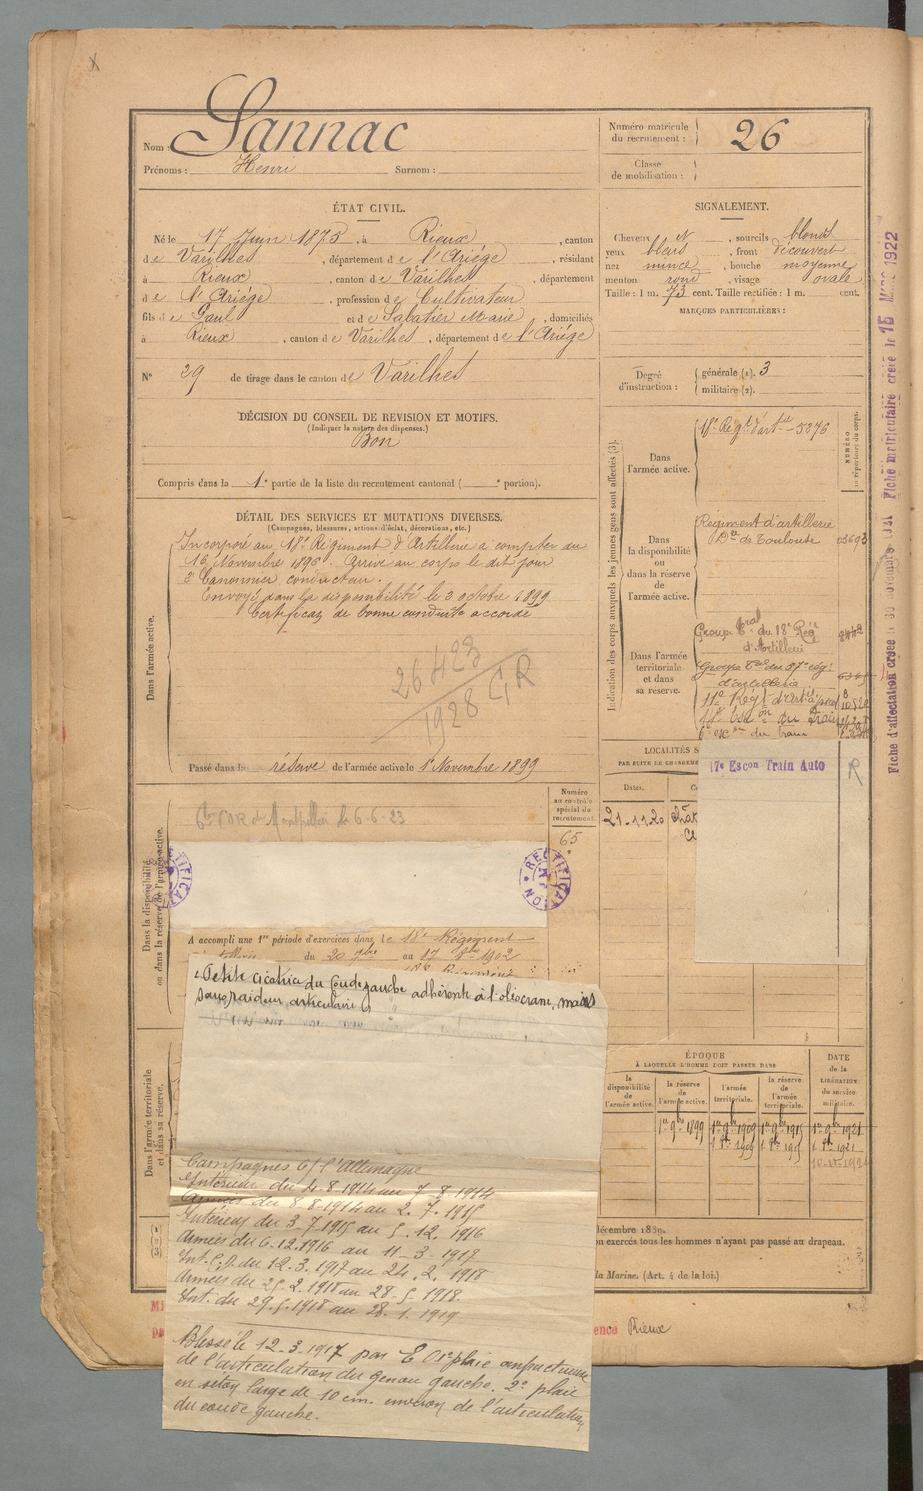 X
Nom : Sannac
Prénoms : Henri Surnom :
Numéro matricule du recrutement : 26
Classe de mobilisation :
ÉTAT CIVIL.
Né le 17 Juin 1875, à Rieux, canton
de Varilhes, département de l'Ariége, résidant
à Rieux, canton de Varilhes, département
de l'Ariége, profession de Cultivateur
fils de Paul et de Sabatier Marie, domiciliés
à Rieux, canton de Varilhes, département de l'Ariége
N° 29 de tirage dans le canton de Varilhes
SIGNALEMENT.
Cheveux N, sourcils blonds
yeux bleus, front découvert
nez mince, bouche moyenne
menton rond, visage ovale
Taille : 1 m. 73 cent. Taille rectifiée : 1 m. cent.
MARQUES PARTICULIÈRES :
Degré d'instruction : générale (1). 3
militaire (2).
DÉCISION DU CONSEIL DE REVISION ET MOTIFS.
(Indiquer la nature des dispenses.)
Bon
Compris dans la 1e partie de la liste du recrutement cantonal ( e portion).
DÉTAIL DES SERVICES ET MUTATIONS DIVERSES.
(Campagnes, blessures, actions d'éclat, décorations, etc.)
Dans l'armée active.
Incorporé au 18e Régiment d'Artillerie à compter du
16 Novembre 1896. Arrivé au corps le dit jour
2e Canonnier conducteur.
Envoyé dans la disponibilité le 2 octobre 1899
Certificat de bonne conduite accordé
26423
1928 GR
Passé dans la réserve de l'armée active le 1er Novembre 1899
Indication des corps auxquels les jeunes gens sont affectés (3).
NUMÉRO au répertoire du corps.
Dans l'armée active.
18e Régt d'artie - 5276
Dans la disponibilité ou dans la réserve de l'armée active.
Régiment d'artillerie
de Toulouse 03693
Dans l'armée territoriale et dans sa réserve.
Groupe tral du 18e Rég
d'Artillerie
Groupe du 57e rég
d'artillerie
du train
17e Escon Train Auto
R
LOCALITÉS S
PAR SUITE DE CHANGEME
Dates.
21-11-20
Numéro au contrôle spécial du recrutement.
65
Dans la disponibilité ou dans la réserve de l'armée active.
Montpellier le 6-6-23
RECTIFICATION
RECTIFICATION
A accompli une 1re période d'exercices dans le 18e Régiment
du 20 7bre au 17 8bre 1902
Petite cicatrice du Coude gauche adhérente à l'olécrane, mais
sans raideur articulaire
Dans l'armée territoriale et dans sa réserve.
ÉPOQUE
À LAQUELLE L'HOMME DOIT PASSER DANS
la disponibilité de l'armée active.
la réserve de l'armée active.
l'armée territoriale.
la réserve de l'armée territoriale.
DATE de la LIBÉRATION du service militaire.
1er 9bre 1899 1er 9bre 1909 1er 9bre 1915 1er 9bre 1921
Campagnes c/ l'Allemagne
Intérieur du 4-8-1914 au 7-8-1914
Armées du 8-8-1914 au 2.7.1915
Intérieur du 3-7-1915 au 5.12.1916
Armées du 6.12.1916 au 11-3-1917
Int. C.S. du 12.3.1917 au 24.2.1918
Armées du 25.2.1918 au 28.5.1918.
Int. du 29.5.1918 au 28.1.1919
Blessé le 12-3-1917 par E O 1° plaie anfractueuse
de l'articulation du genou gauche. 2° plaie
en séton large de 10 cm. environ de l'articulation
du coude gauche.
décembre 1889.
n exercés tous les hommes n'ayant pas passé au drapeau.
la Marine. (Art. 4 de la loi.)
ence Rieux
Fiche matriculaire créée le 15 Mars 1922